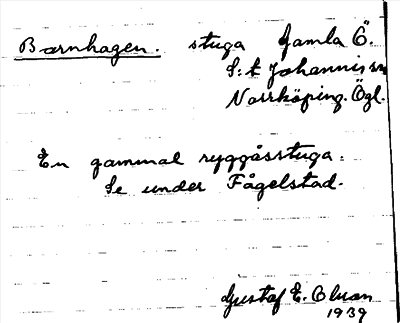 Barnhagen. stuga Gamla Ö.
S:t Johannis sn
Norrköping. Ögl.
En gammal ryggåsstuga.
Se under Fågelstad.
Gustaf E. Olsson
1939